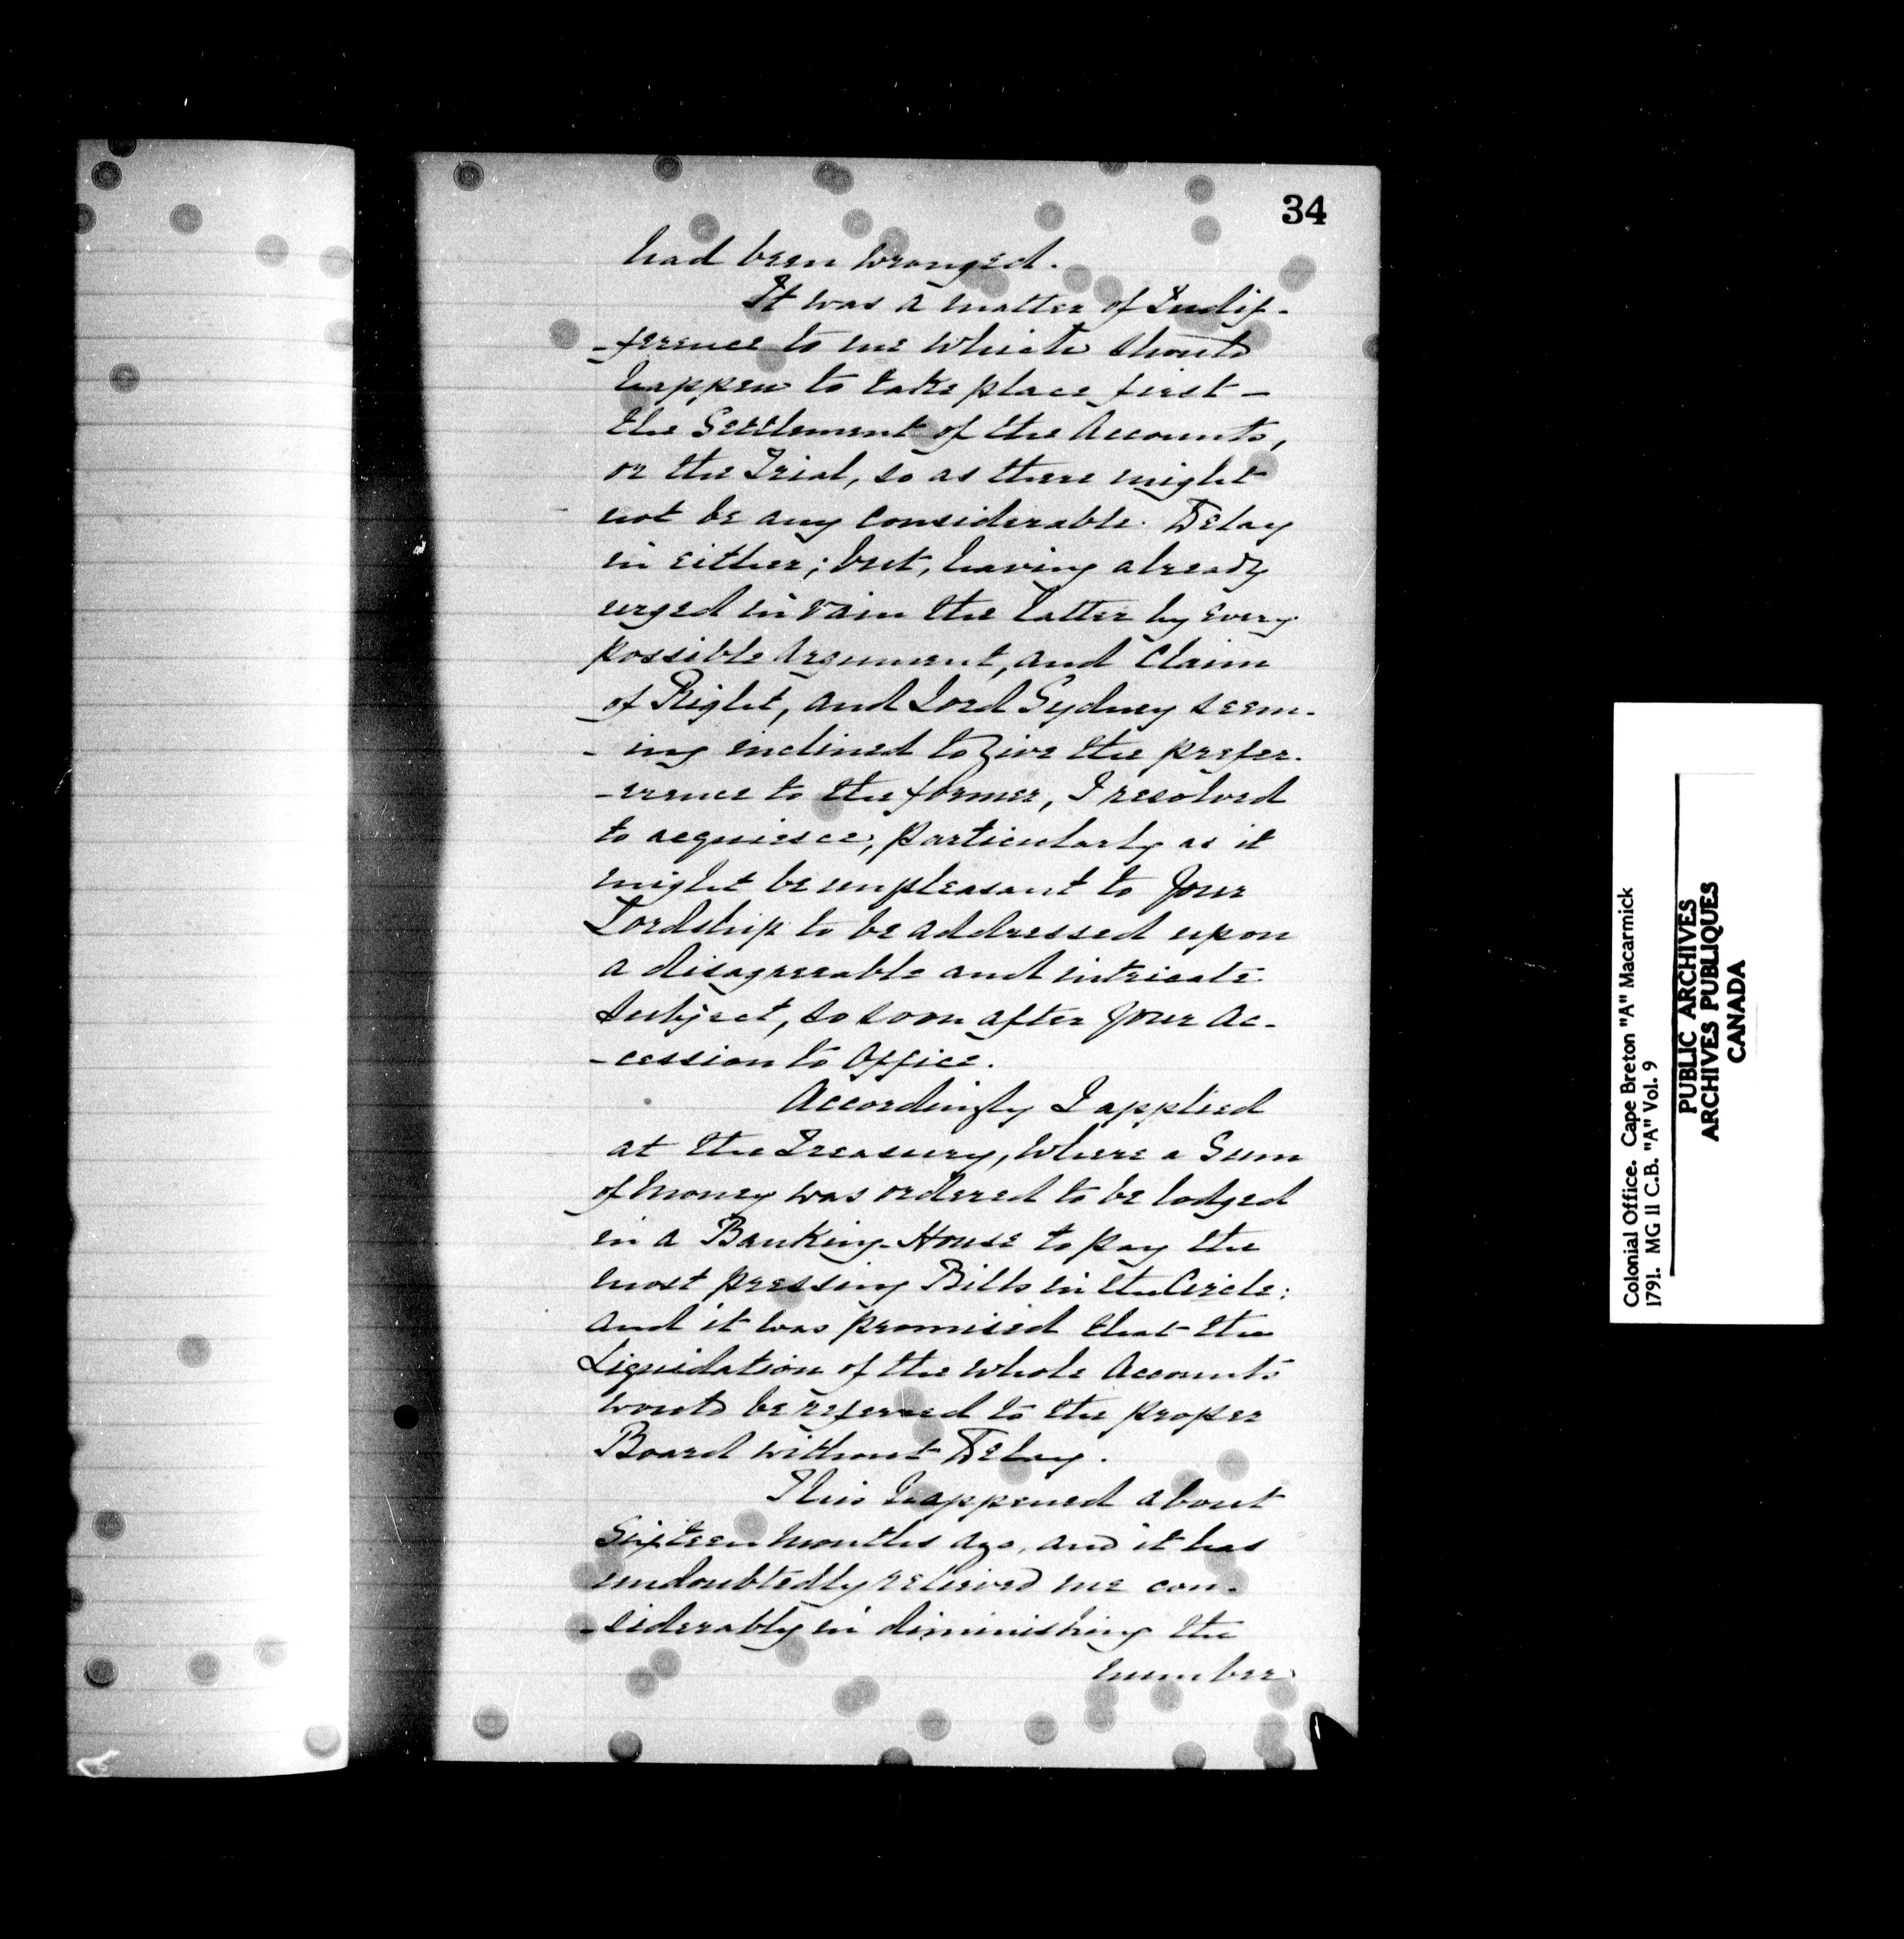 34
had been wronged.
It was a matter of Indif-
-ference to me which should
happen to take place first -
the Settlement of the Accounts,
or the Trial, so as there might
not be any considerable Delay
in either; but, having already
urged in vain the latter by every
possible Argument, and Claim
of Right, and Lord Sydney seem-
-ing inclined to give the prefer-
-erence to the former, I resolved
to acquiesce, particularly as it
might be unpleasant to Your
Lordship to be addressed upon
a disagreeable and intricate
Subject, so soon after Your Ac-
-cession to Office.
Accordingly I applied
at the Treasury, where a Sum
of Money was ordered to be lodged
in a Banking-House to pay the
most pressing Bills in the Circle:
and it was promised that the
Liquidation of the whole Accounts
would be referred to the proper
Board without Delay.
This happened about
Sixteen Months ago, and it has
undoubtedly relieved me con-
-siderably in diminishing the
number
Colonial Office. Cape Breton "A" Macarmick
1791. MG 11 C.B. "A" Vol. 9
PUBLIC ARCHIVES
ARCHIVES PUBLIQUES
CANADA